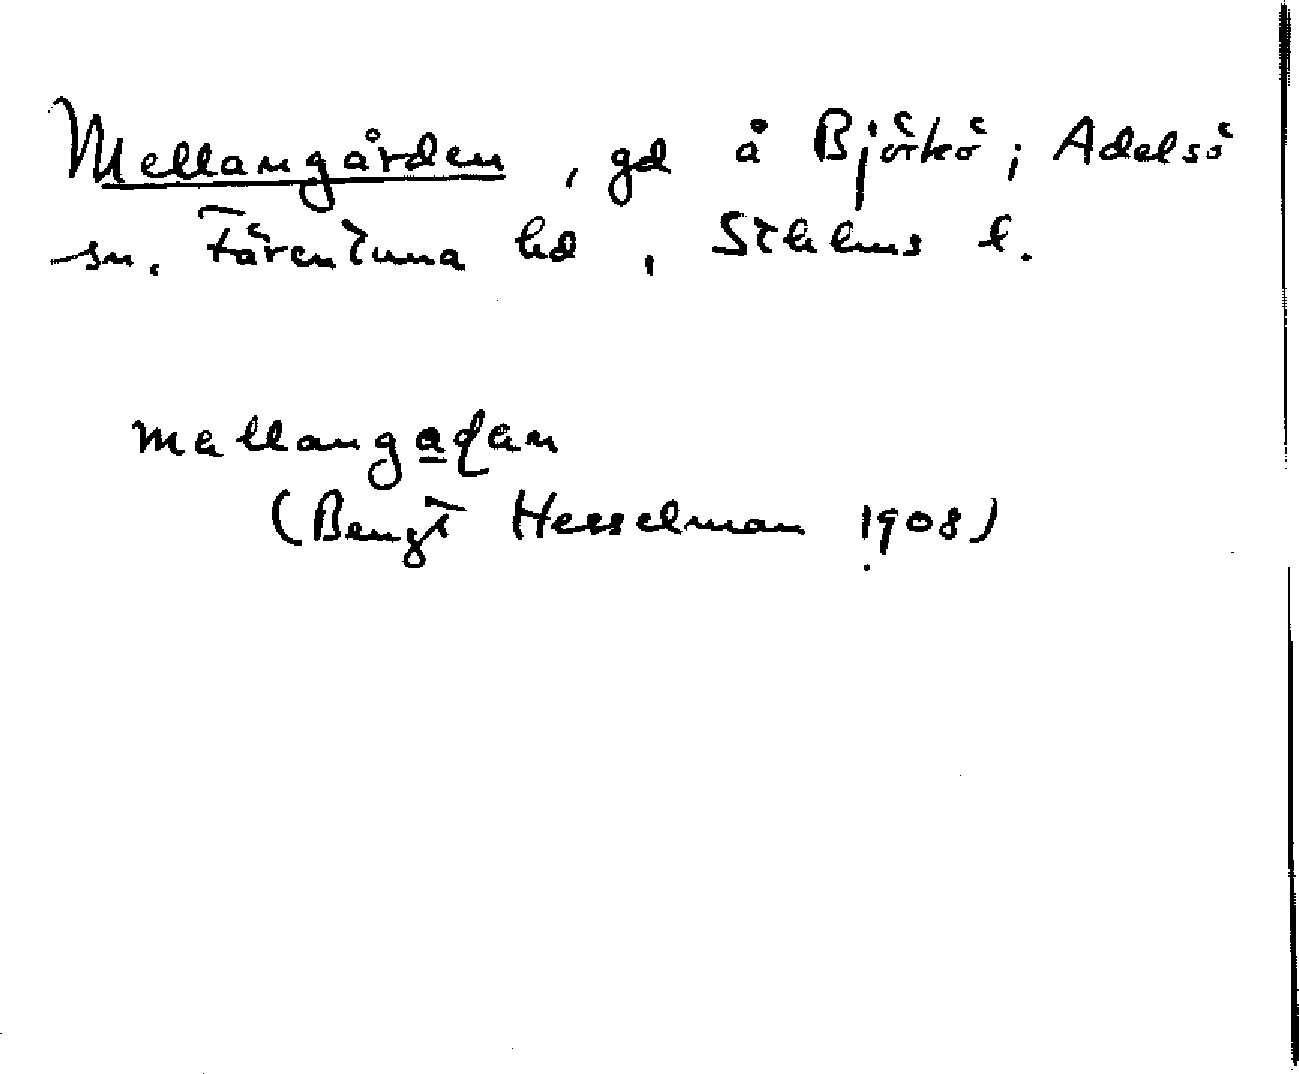 Mellangården, gd å Björkö; Adelsö
sn. Färentuna hd, Sthlms l.
mallangaɖan
(Bengt Hesselman 1908)